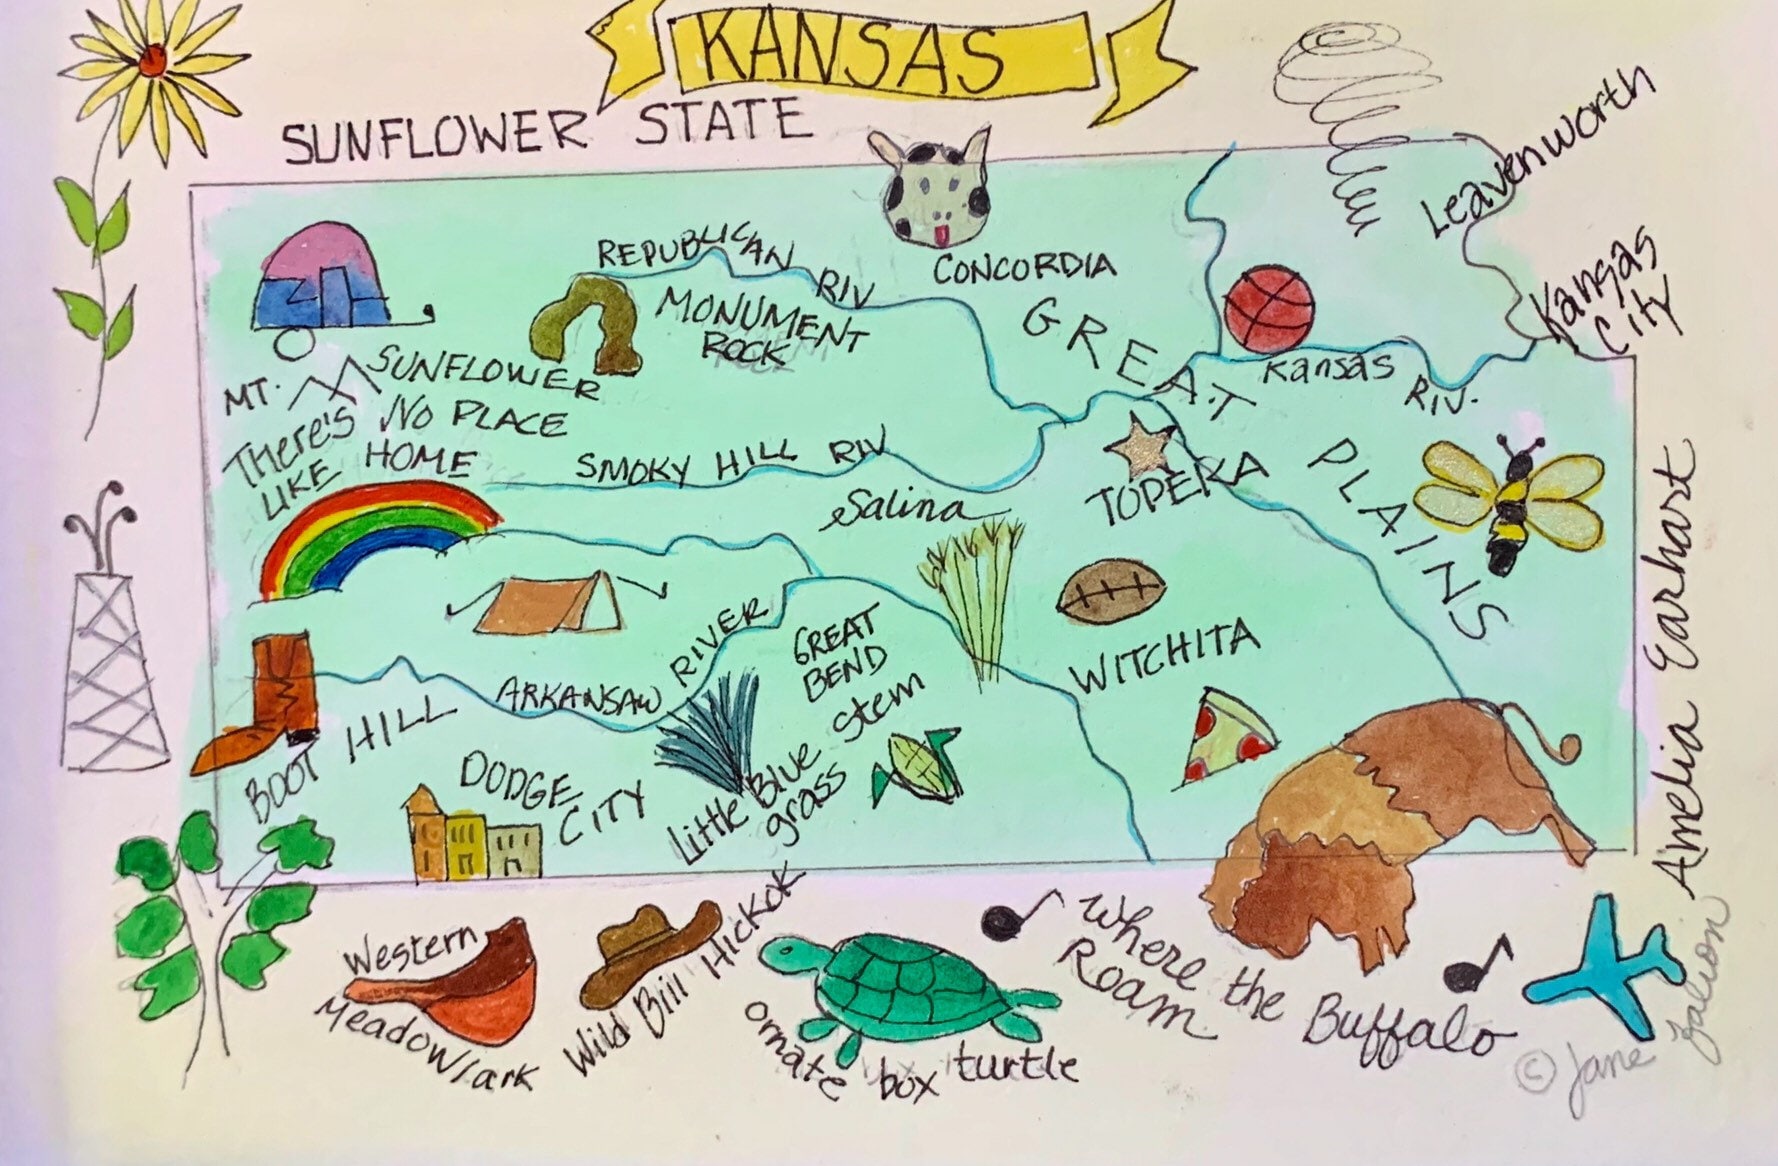 KANSAS
SUNFLOWER STATE
Leavenworth
Kansas
City
REPUBLICAN RIV
CONCORDIA
MONUMENT
ROCK
GREAT PLAINS
Kansas RIV.
MT. SUNFLOWER
THere's NO PLACE
LIKE HOME
SMOKY HILL RIV
Salina
TOPEKA
ARKANSAW RIVER
GREAT
BEND
WITCHITA
Amelia Earhart
BOOT HILL
DODGE
CITY
Little Blue stem
grass
Western
Meadowlark
Wild Bill Hickok
ornate box turtle
Where the Buffalo
Roam
© Jane Zalion